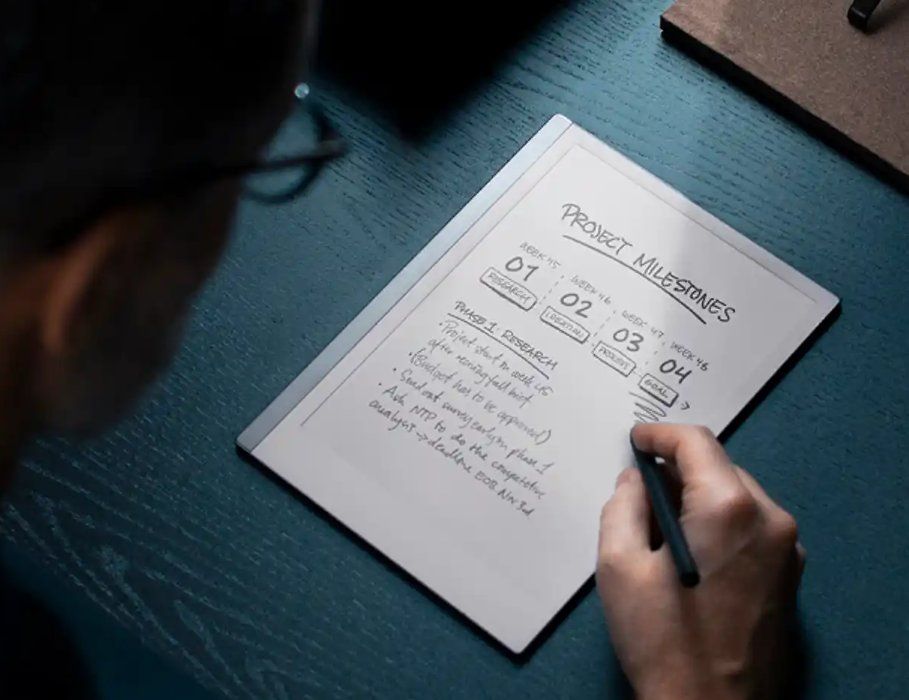 PROJECT MILESTONES
WEEK 45 WEEK 46 WEEK 47 WEEK
01 02 03 04
RESEARCH IDEATION GOAL
PHASE 1: RESEARCH
· Project start in week 45
after receiving full brief
· (Budget has to be approved)
· Send out survey early in phase 1
· Ask NTP to do the competitive
analysis → deadline EOB Nov 3rd